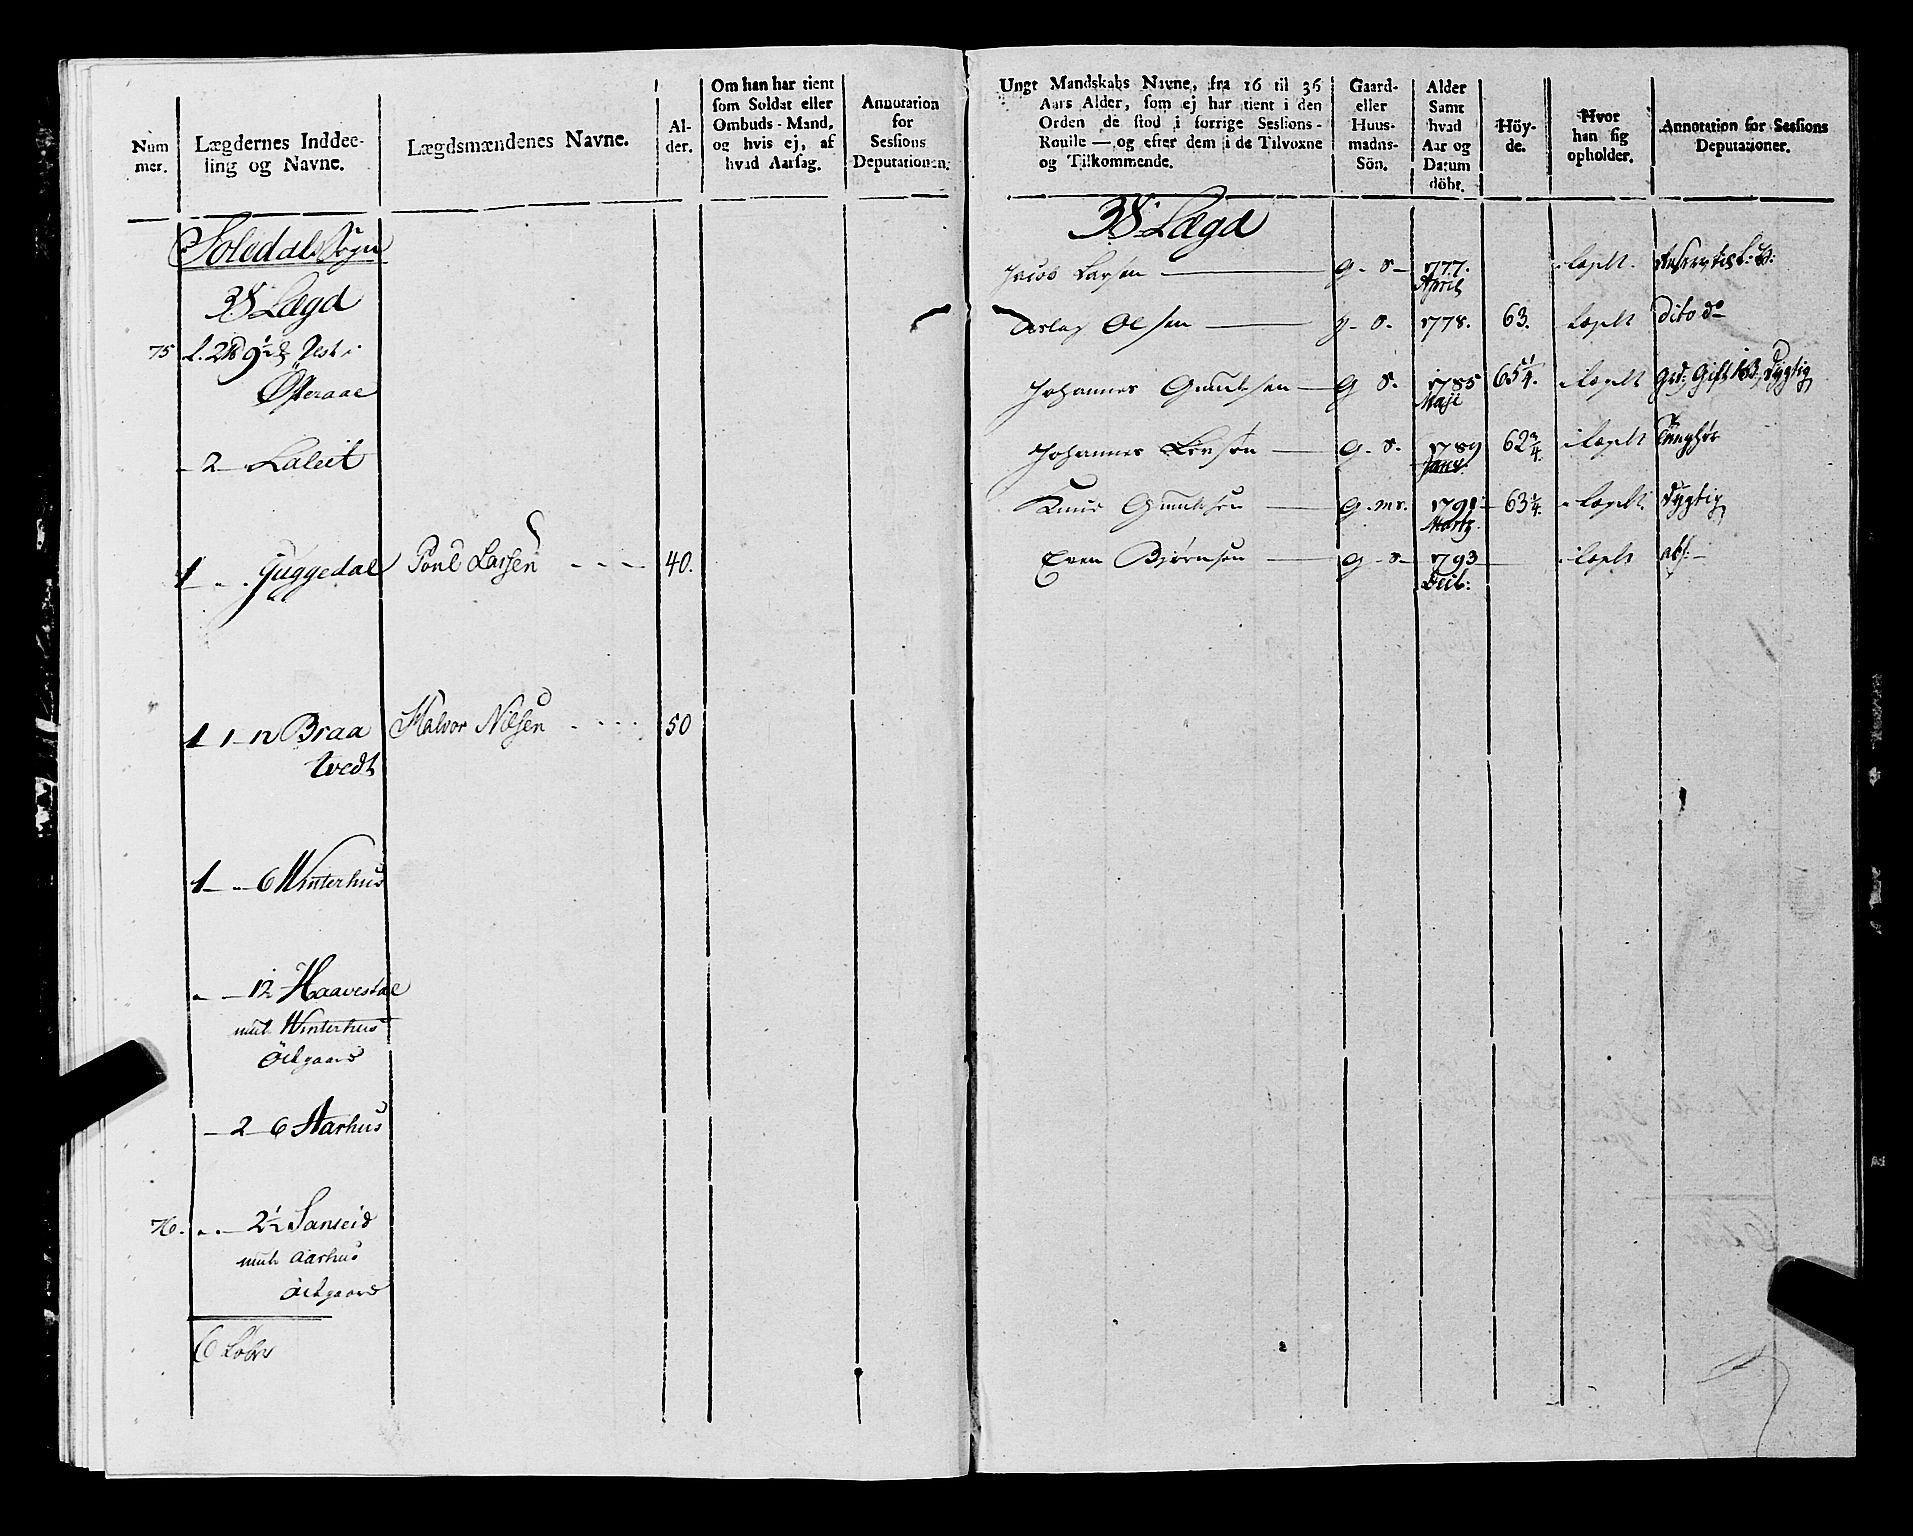 Num
mer.
Lægdernes Inddee-
ling og Navne.
Lægdsmændenes Navne.
Al-
der.
Om han har tient
som Soldat eller
Ombuds-Mand,
og hvis ej, af
hvad Aarsag.
Annotation
for
Sessions
Deputationen.
Sogn
38 Lægd
75
Österaae
2 Laleit
1 Juggedal Poul Larsen 40.
1 1 12 Braa Halvor Nilsen 50
tvedt
1 6 Winterhus
12 Haavestdal
mut Winterhus
Ödegaard
2 6 Aarhus
76. 2½ Sanseid
mut Aarhus
Ödegaard
6
Ungt Mandskabs Navne, fra 16 til 36
Aars Alder, som ej har tient i den
Orden de stod i forrige Sessions-
Roulle — og efter dem i de Tilvoxne
og Tilkommende.
Gaard-
eller
Huus-
mands-
Sön.
Alder
Samt
hvad
Aar og
Datum
döbt.
Höy-
de.
Hvor
han sig
opholder.
Annotation for Sessions
Deputationer.
38 Lægd
Jacob Larsen G. S. 1777.
April
Aslag Olsen g. S. 1778. 63. Dito do
Johannes G. S. 1785 65¼. Dygtig
Maji
Johannes G. S. 1789 62¾.
Janv.
Knud G. 1791 63¼. Dygtig
Martz
Even Bjørnsen G. S. 1793 abs:
Decb: